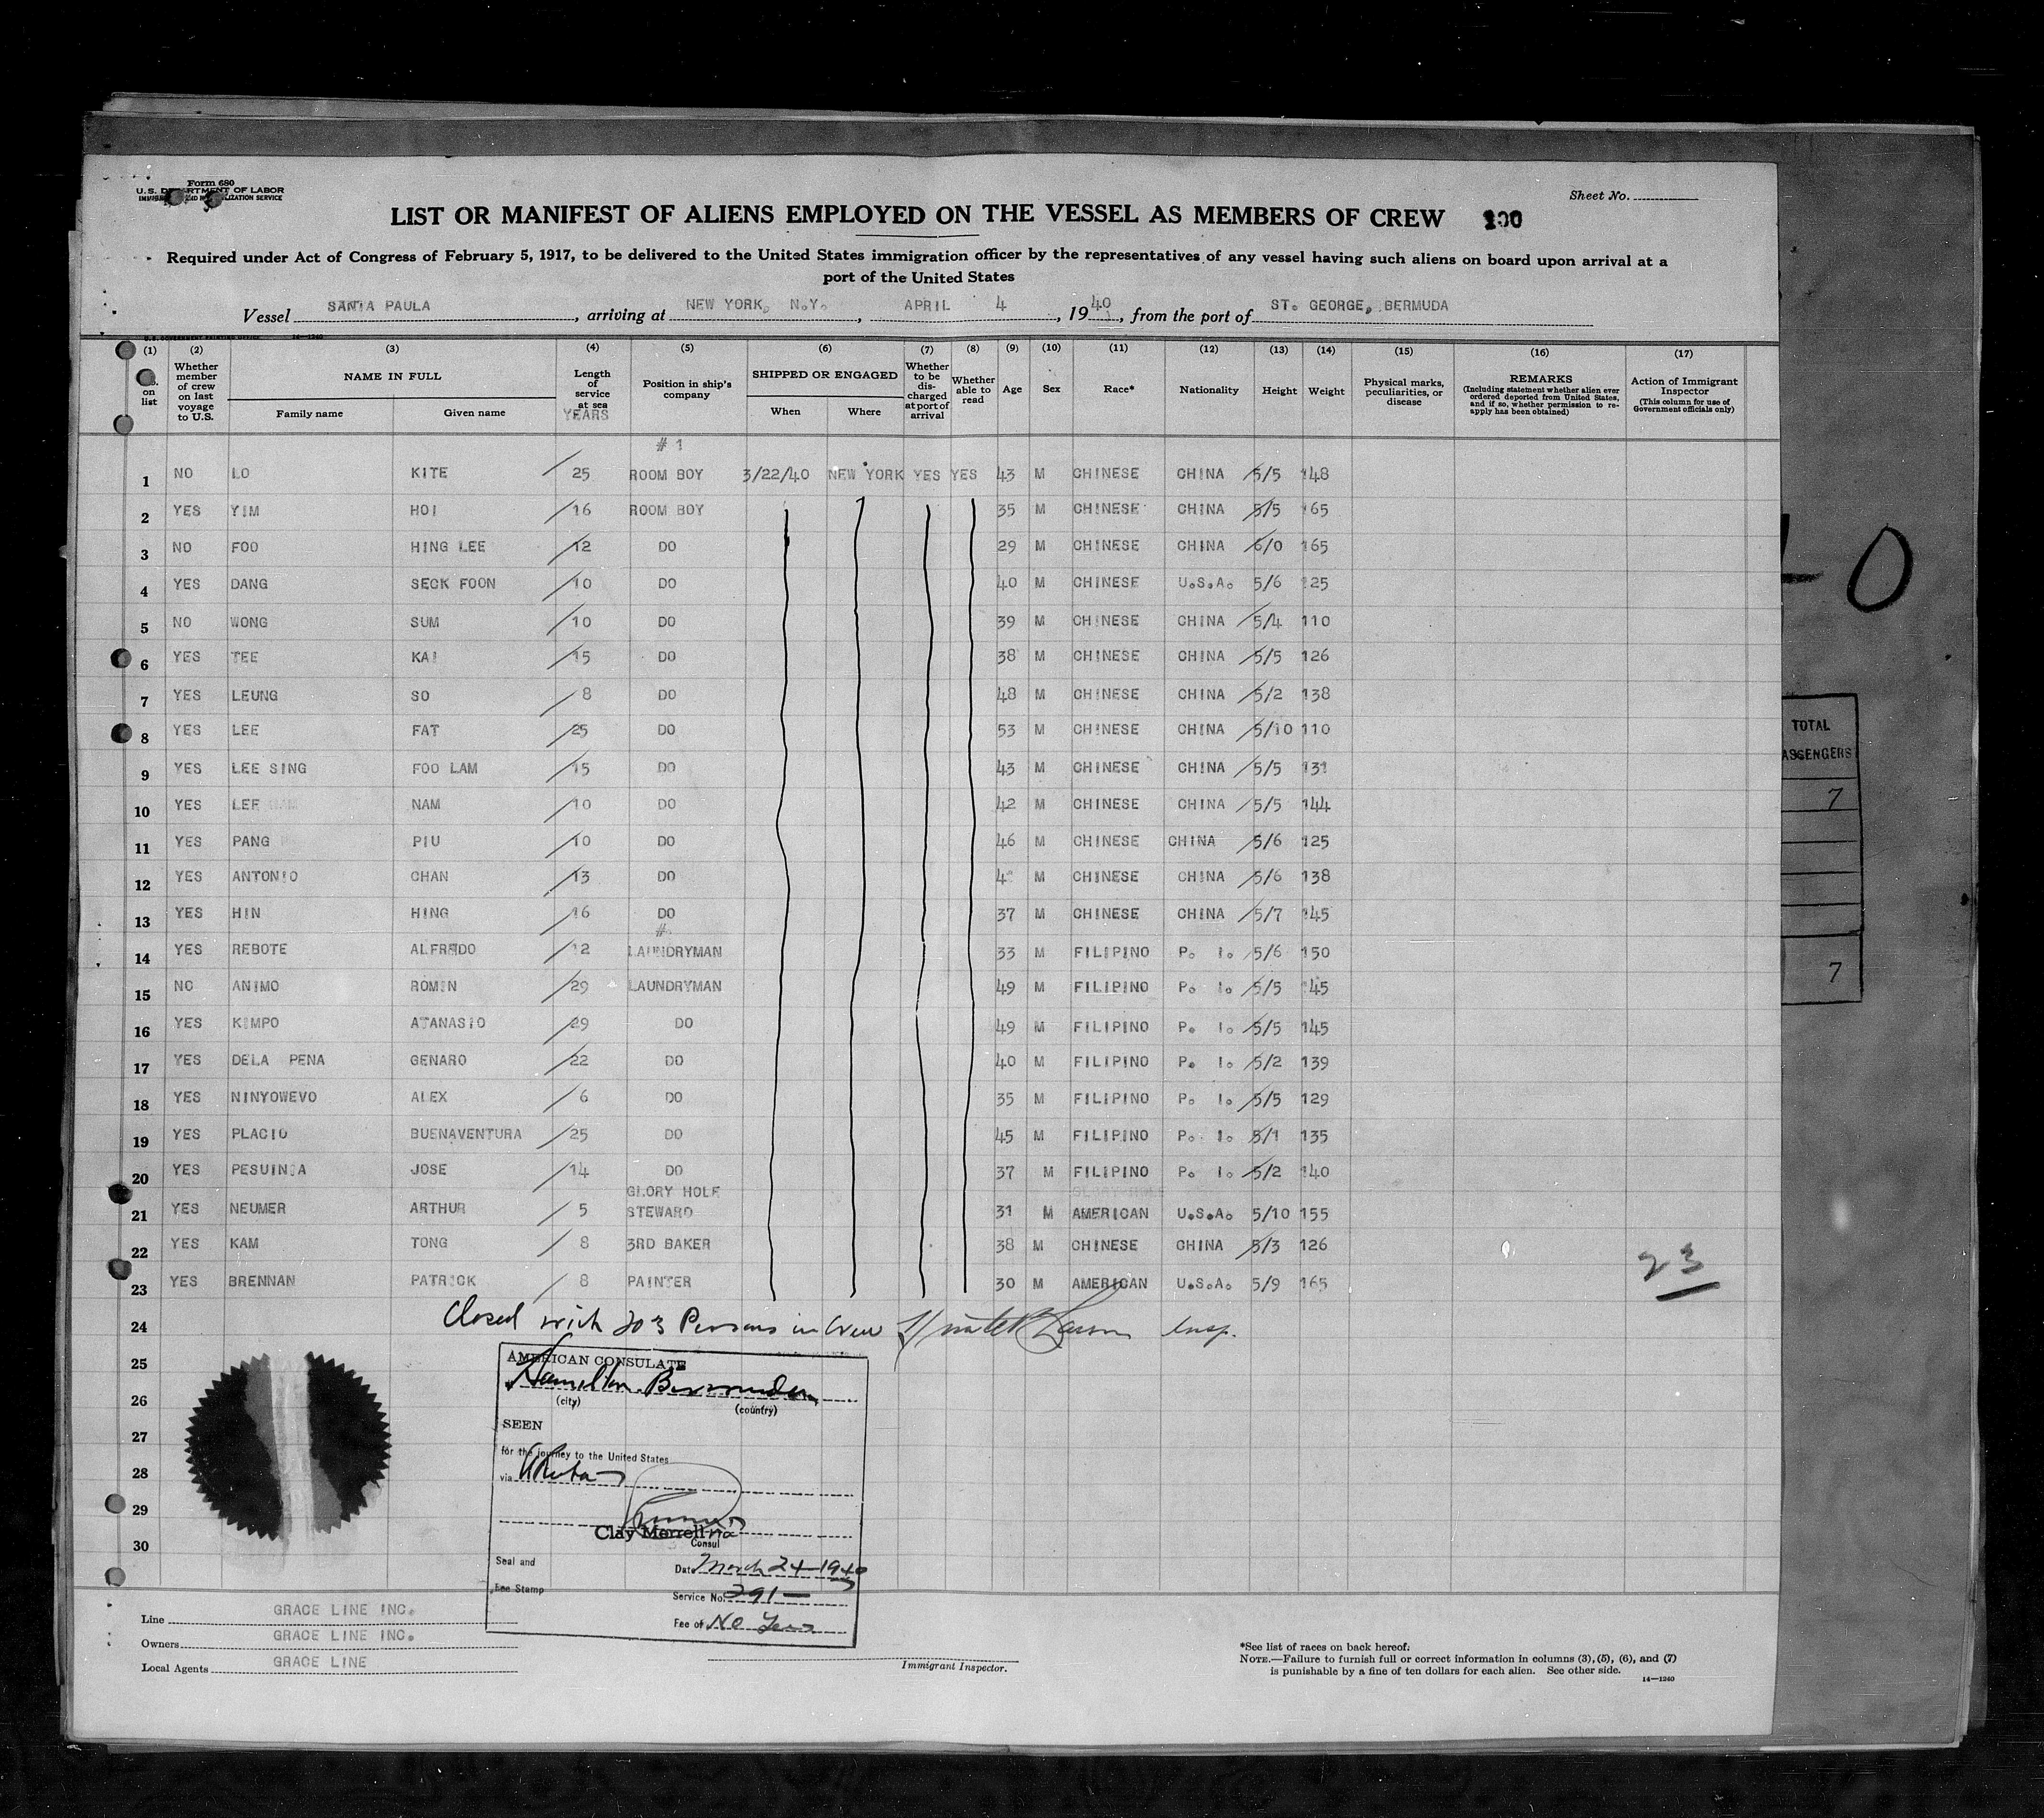 Form 680
U.S. DEPARTMENT OF LABOR
IMMIGRATION AND NATURALIZATION SERVICE
Sheet No.
LIST OR MANIFEST OF ALIENS EMPLOYED ON THE VESSEL AS MEMBERS OF CREW
Required under Act of Congress of February 5, 1917, to be delivered to the United States immigration officer by the representatives of any vessel having such aliens on board upon arrival at a
port of the United States
Vessel SANTA PAULA, arriving at NEW YORK, N.Y., APRIL 4, 1940, from the port of ST. GEORGE, BERMUDA
U.S. GOVERNMENT PRINTING OFFICE 14—1240
(1) (2) (3) (4) (5) (6) (7) (8) (9) (10) (11) (12) (13) (14) (15) (16) (17)
on list
Whether member of crew on last voyage to U.S.
NAME IN FULL
Family name
Given name
Length of service at sea
YEARS
Position in ship's company
SHIPPED OR ENGAGED
When
Where
Whether to be discharged at port of arrival
Whether able to read
Age
Sex
Race*
Nationality
Height
Weight
Physical marks, peculiarities, or disease
REMARKS
(Including statement whether alien ever ordered deported from United States, and if so, whether permission to reapply has been obtained)
Action of Immigrant Inspector
(This column for use of Government officials only)
# 1
1 NO LO KITE 25 ROOM BOY 3/22/40 NEW YORK YES YES 43 M CHINESE CHINA 5/5 148
2 YES YIM HOI 16 ROOM BOY 35 M CHINESE CHINA 5/5 165
3 NO FOO HING LEE 12 DO 29 M CHINESE CHINA 6/0 165
4 YES DANG SECK FOON 10 DO 40 M CHINESE U.S.A. 5/6 125
5 NO WONG SUM 10 DO 39 M CHINESE CHINA 5/4 110
6 YES TEE KAI 15 DO 38 M CHINESE CHINA 5/5 126
7 YES LEUNG SO 8 DO 48 M CHINESE CHINA 5/2 138
8 YES LEE FAT 25 DO 53 M CHINESE CHINA 5/10 110
9 YES LEE SING FOO LAM 15 DO 43 M CHINESE CHINA 5/5 131
10 YES LEE NAM 10 DO 42 M CHINESE CHINA 5/5 144
11 YES PANG PIU 10 DO 46 M CHINESE CHINA 5/6 125
12 YES ANTONIO CHAN 13 DO M CHINESE CHINA 5/6 138
13 YES HIN HING 16 DO 37 M CHINESE CHINA 5/7 145
#
14 YES REBOTE ALFREDO 12 LAUNDRYMAN 33 M FILIPINO P. I. 5/6 150
15 NO ANIMO ROMIN 29 LAUNDRYMAN 49 M FILIPINO P. I. 5/5 145
16 YES KIMPO ATANASIO 29 DO 49 M FILIPINO P. I. 5/5 145
17 YES DELA PENA GENARO 22 DO 40 M FILIPINO P. I. 5/2 139
18 YES NINYOWEVO ALEX 6 DO 35 M FILIPINO P. I. 5/5 129
19 YES PLACIO BUENAVENTURA 25 DO 45 M FILIPINO P. I. 5/1 135
20 YES PESUINJA JOSE 14 DO 37 M FILIPINO P. I. 5/2 140
GLORY HOLE
21 YES NEUMER ARTHUR 5 STEWARD 31 M AMERICAN U.S.A. 5/10 155
22 YES KAM TONG 8 3RD BAKER 38 M CHINESE CHINA 5/3 126
23 YES BRENNAN PATRICK 8 PAINTER 30 M AMERICAN U.S.A. 5/9 165
23
24 Closed with 203 Persons in Crew Insp.
25
26
27
28
29
30
AMERICAN CONSULATE
Hamilton Bermuda
(city) (country)
SEEN
for the journey to the United States
via
Clay Merrell
Consul
Seal and
Fee Stamp
Date March 24-1940
Service No. 291—
Fee of No Fee
Line GRACE LINE INC.
Owners GRACE LINE INC.
Local Agents GRACE LINE
Immigrant Inspector.
*See list of races on back hereof.
NOTE.—Failure to furnish full or correct information in columns (3), (5), (6), and (7)
is punishable by a fine of ten dollars for each alien. See other side.
14—1240
TOTAL
PASSENGERS
7
7
0